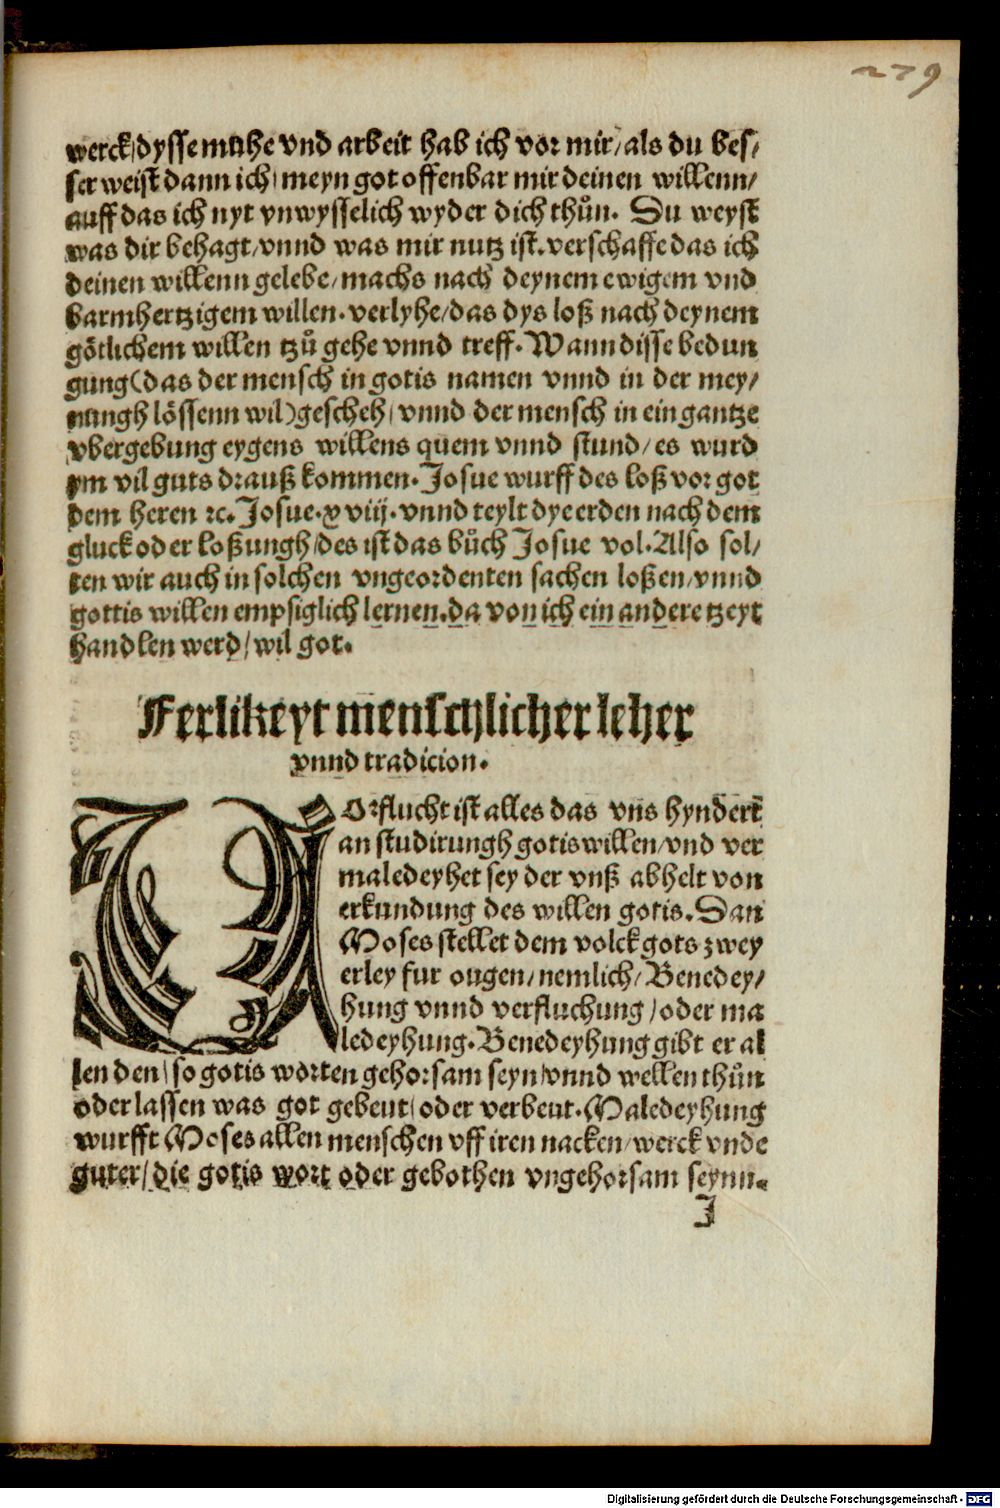 279
werck/dysse muhe vnd arbeit hab ich vor mir/als du bes/
ser weist dann ich/meyn got offenbar mir deinen willenn/
auff das ich nyt vnwysselich wyder dich thůn. Du weyst
was dir behagt/vnnd was mir nutz ist.verschaffe das ich
deinen willenn gelebe/machs nach deynem ewigem vnd
barmhertzigem willen.verlyhe/das dys loß nach deynem
götlichem willen tzů gehe vnnd treff.Wann disse bedun
gung(das der mensch in gotis namen vnnd in der mey/
nungh lössenn wil)gescheh/vnnd der mensch in ein gantze
vbergebung eygens willens quem vnnd stund/es wurd
ym vil guts drauß kommen.Josue wurff des loß vor got
dem heren ꝛc.Josue.xviij.vnnd teylt dye erden nach dem
gluck oder loßungh/des ist das bůch Josue vol.Also sol/
ten wir auch in solchen vngeordenten sachen loßen/vnnd
gottis willen empsiglich lernen.da von ich ein andere tzeyt
handlen werd/wil got.
Ferlikeyt menschlicher leher
vnnd tradicion.
VOrflucht ist alles das vns hyndert
an studirungh gotis willen/vnd ver
maledeyhet sey der vnß abhelt von
erkundung des willen gotis.Dan
Moses stellet dem volck gots zwey
erley fur ougen/nemlich/Benedey/
hung vnnd verfluchung/oder ma
ledeyhung.Benedeyhung gibt er al
len den/so gotis worten gehorsam seyn/vnnd wellen thůn
oder lassen was got gebeut/oder verbeut.Maledeyhung
wurfft Moses allen menschen vff iren nacken/werck vnde
guter/die gotis wort oder gebothen vngehorsam seynn.
J
Digitalisierung gefördert durch die Deutsche Forschungsgemeinschaft - DFG